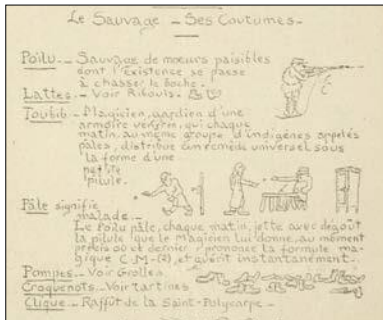 Le Sauvage - Ses Coutumes -
Poilu. - Sauvage de moeurs paisibles
dont l'existence se passe
à chasser le boche.
Lattes. - Voir Ribouis.
Toubib - Magicien, gardien d'une
armoire ver-jim, qui chaque
matin, au même groupe d'indigènes appelés
pâles, distribue un remède universel sous
la forme d'une
petite
pilule.
Pâle signifie
malade. -
Le Poilu pâle, chaque matin, jette avec dégoût
la pilule que le Magicien lui donne, au moment
précis où ce dernier prononce la formule ma-
gique C-M-(2), et guérit instantanément.
Pompes - Voir Grolles
Croquenots - Voir tartines
Clique - Raffût de la Saint-Polycarpe -